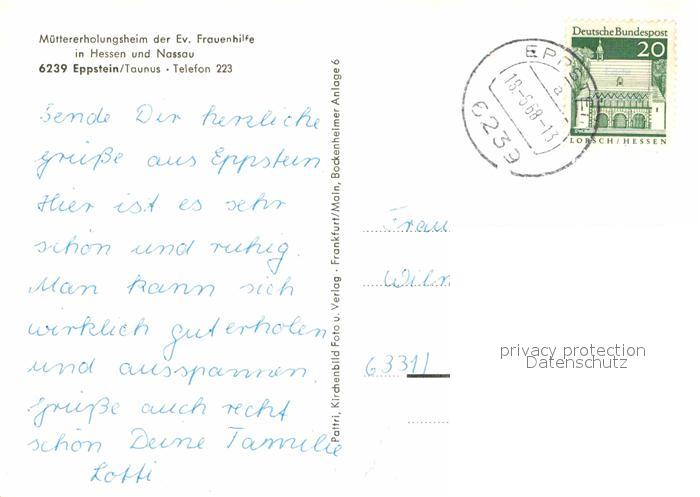 Müttererholungsheim der Ev. Frauenhilfe
in Hessen und Nassau
6239 Eppstein/Taunus · Telefon 223
Sende Dir herzliche
grüße aus Eppstein
Hier ist es sehr
schön und ruhig.
Man kann sich
wirklich gut erholen
und ausspannen.
Grüße auch recht
schön Deine Familie
Lotti
Pattri, Kirchenbild Foto u. Verlag · Frankfurt/Main, Bockenheimer Anlage 6
EPPSTEIN
a
18-6.68-13
6239
Deutsche Bundespost
20
LORSCH/HESSEN
Frau
6331
privacy protection
Datenschutz